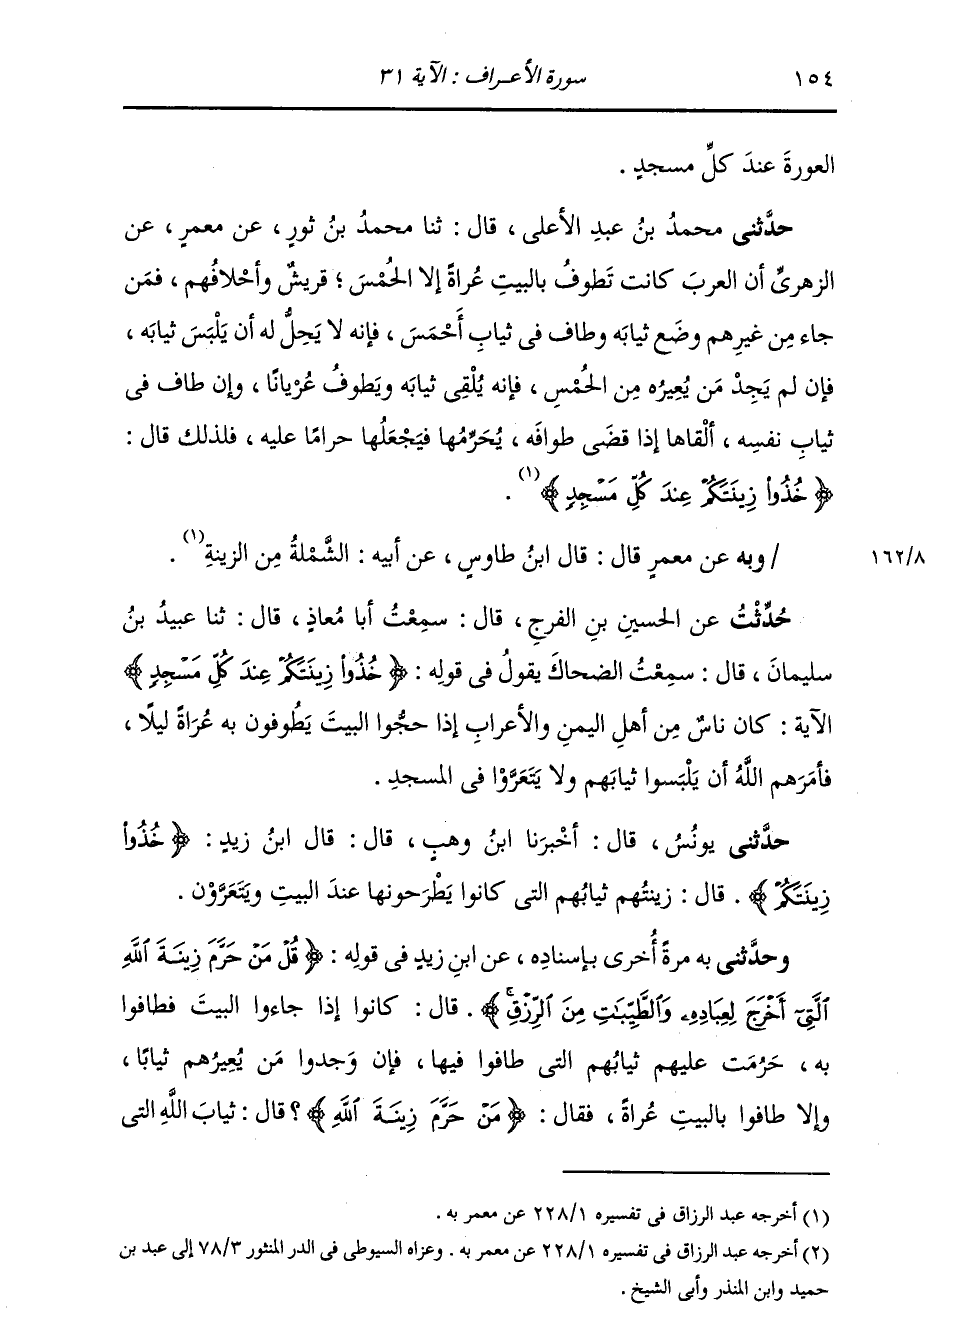 ١٥٤ سورة الأعراف : الآية ٣١
العورةَ عندَ كلِّ مسجدٍ .
حدَّثنى محمدُ بنُ عبدِ الأعلى ، قال : ثنا محمدُ بنُ ثورٍ ، عن معمرٍ ، عن
الزهرىِّ أن العربَ كانت تَطوفُ بالبيتِ عُراةً إلا الحُمْسَ ؛ قريشٌ وأحْلافُهم ، فمَن
جاء مِن غيرِهم وضَع ثيابَه وطاف فى ثيابِ أَحْمَسَ ، فإنه لا يَحِلُّ له أن يَلْبَسَ ثيابَه ،
فإن لم يَجِدْ مَن يُعِيرُه مِن الحُمْسِ ، فإنه يُلْقِى ثيابَه ويَطوفُ عُرْيانًا ، وإن طاف فى
ثيابِ نفسِه ، أَلْقاها إذا قضَى طوافَه ، يُحَرِّمُها فيَجْعَلُها حرامًا عليه ، فلذلك قال :
﴿ خُذُوا۟ زِينَتَكُمْ عِندَ كُلِّ مَسْجِدٍ ﴾(١) .
١٦٢/٨ / وبه عن معمرٍ قال : قال ابنُ طاوسٍ ، عن أبيه : الشَّمْلةُ مِن الزينةِ(١) .
حُدِّثْتُ عن الحسينِ بنِ الفرجِ ، قال : سمِعْتُ أبا مُعاذٍ ، قال : ثنا عبيدُ بنُ
سليمانَ ، قال : سمِعْتُ الضحاكَ يقولُ فى قولِه : ﴿ خُذُوا۟ زِينَتَكُمْ عِندَ كُلِّ مَسْجِدٍ ﴾
الآية : كان ناسٌ مِن أهلِ اليمنِ والأعرابِ إذا حجُّوا البيتَ يَطُوفون به عُرَاةً ليلًا ،
فأمَرَهم اللَّهُ أن يَلْبَسوا ثيابَهم ولا يَتَعَرَّوْا فى المسجدِ .
حدَّثنى يونُسُ ، قال : أخْبرَنا ابنُ وهبٍ ، قال : قال ابنُ زيدٍ : ﴿ خُذُوا۟
زِينَتَكُمْ ﴾ . قال : زينتُهم ثيابُهم التى كانوا يَطْرَحونها عندَ البيتِ ويَتَعَرَّوْن .
وحدَّثنى به مرةً أُخرى بإسنادِه ، عن ابنِ زيدٍ فى قولِه : ﴿ قُلْ مَنْ حَرَّمَ زِينَةَ ٱللَّهِ
ٱلَّتِىٓ أَخْرَجَ لِعِبَادِهِۦ وَٱلطَّيِّبَٰتِ مِنَ ٱلرِّزْقِۚ ﴾ . قال : كانوا إذا جاءوا البيتَ فطافوا
به ، حَرُمَت عليهم ثيابُهم التى طافوا فيها ، فإن وَجدوا مَن يُعِيرُهم ثيابًا ،
وإلا طافوا بالبيتِ عُراةً ، فقال : ﴿ مَنْ حَرَّمَ زِينَةَ ٱللَّهِ ﴾ ؟ قال : ثيابَ اللَّهِ التى
(١) أخرجه عبد الرزاق فى تفسيره ٢٢٨/١ عن معمر به .
(٢) أخرجه عبد الرزاق فى تفسيره ٢٢٨/١ عن معمر به . وعزاه السيوطى فى الدر المنثور ٧٨/٣ إلى عبد بن
حميد وابن المنذر وأبى الشيخ .